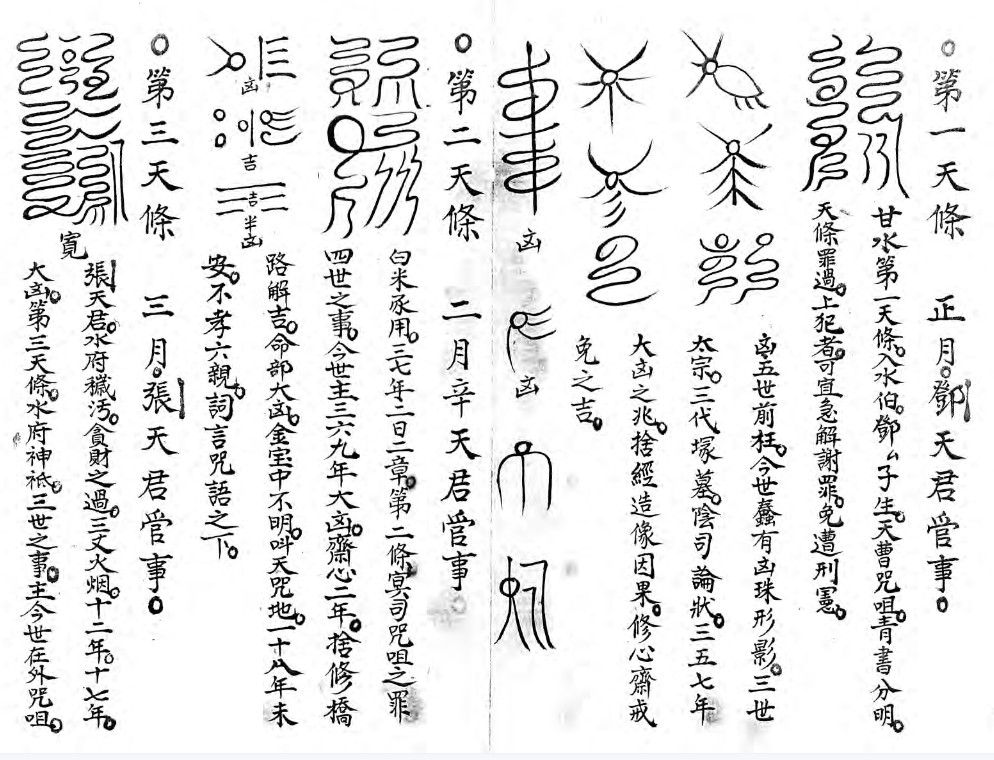 ○第一天條 正月○鄧天君管事○
甘水第一天條○入水伯○鄧厶子生○天曹咒咀○青書分明○
天條罪過○上犯者○可宜急解謝罪○免遭刑憲○
凶五世前枉○今世蠢有凶珠形影○三世
太宗○三代塚墓○陰司論狀○三五七年
大凶之兆○捨經造像因果○修心齋戒
免之吉○
凶
凶
○第二天條 二月辛天君管事○
白米承用○三七年二日二章○第二條冥司咒咀之罪
四世之事○今世主三六九年大凶○齋心二年○捨修橋
路解吉○命部大凶○金宝中不明○叫天咒地○一十八年未
安○不孝六親○詞言咒語之下○
凶
吉
吉
半凶
○第三天條 三月○張天君管事○
寬
張天君○水府穢污○貪財之過○三丈火烟○十二年○十七年○
大凶○第三天條○水府神祗○三世之事○主今世在外咒咀○